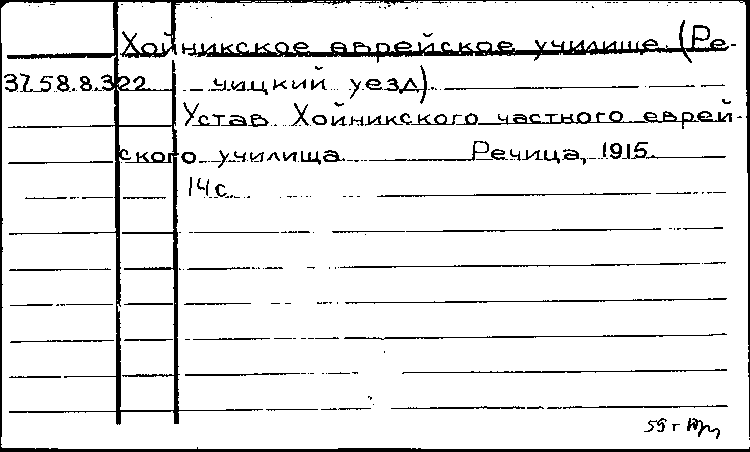 Хойникское еврейское училище (Ре-
37.58.8.322 чицкий уезд).
Устав Хойникского частного еврей-
ского училища Речица, 1915.
14 с.
59 г